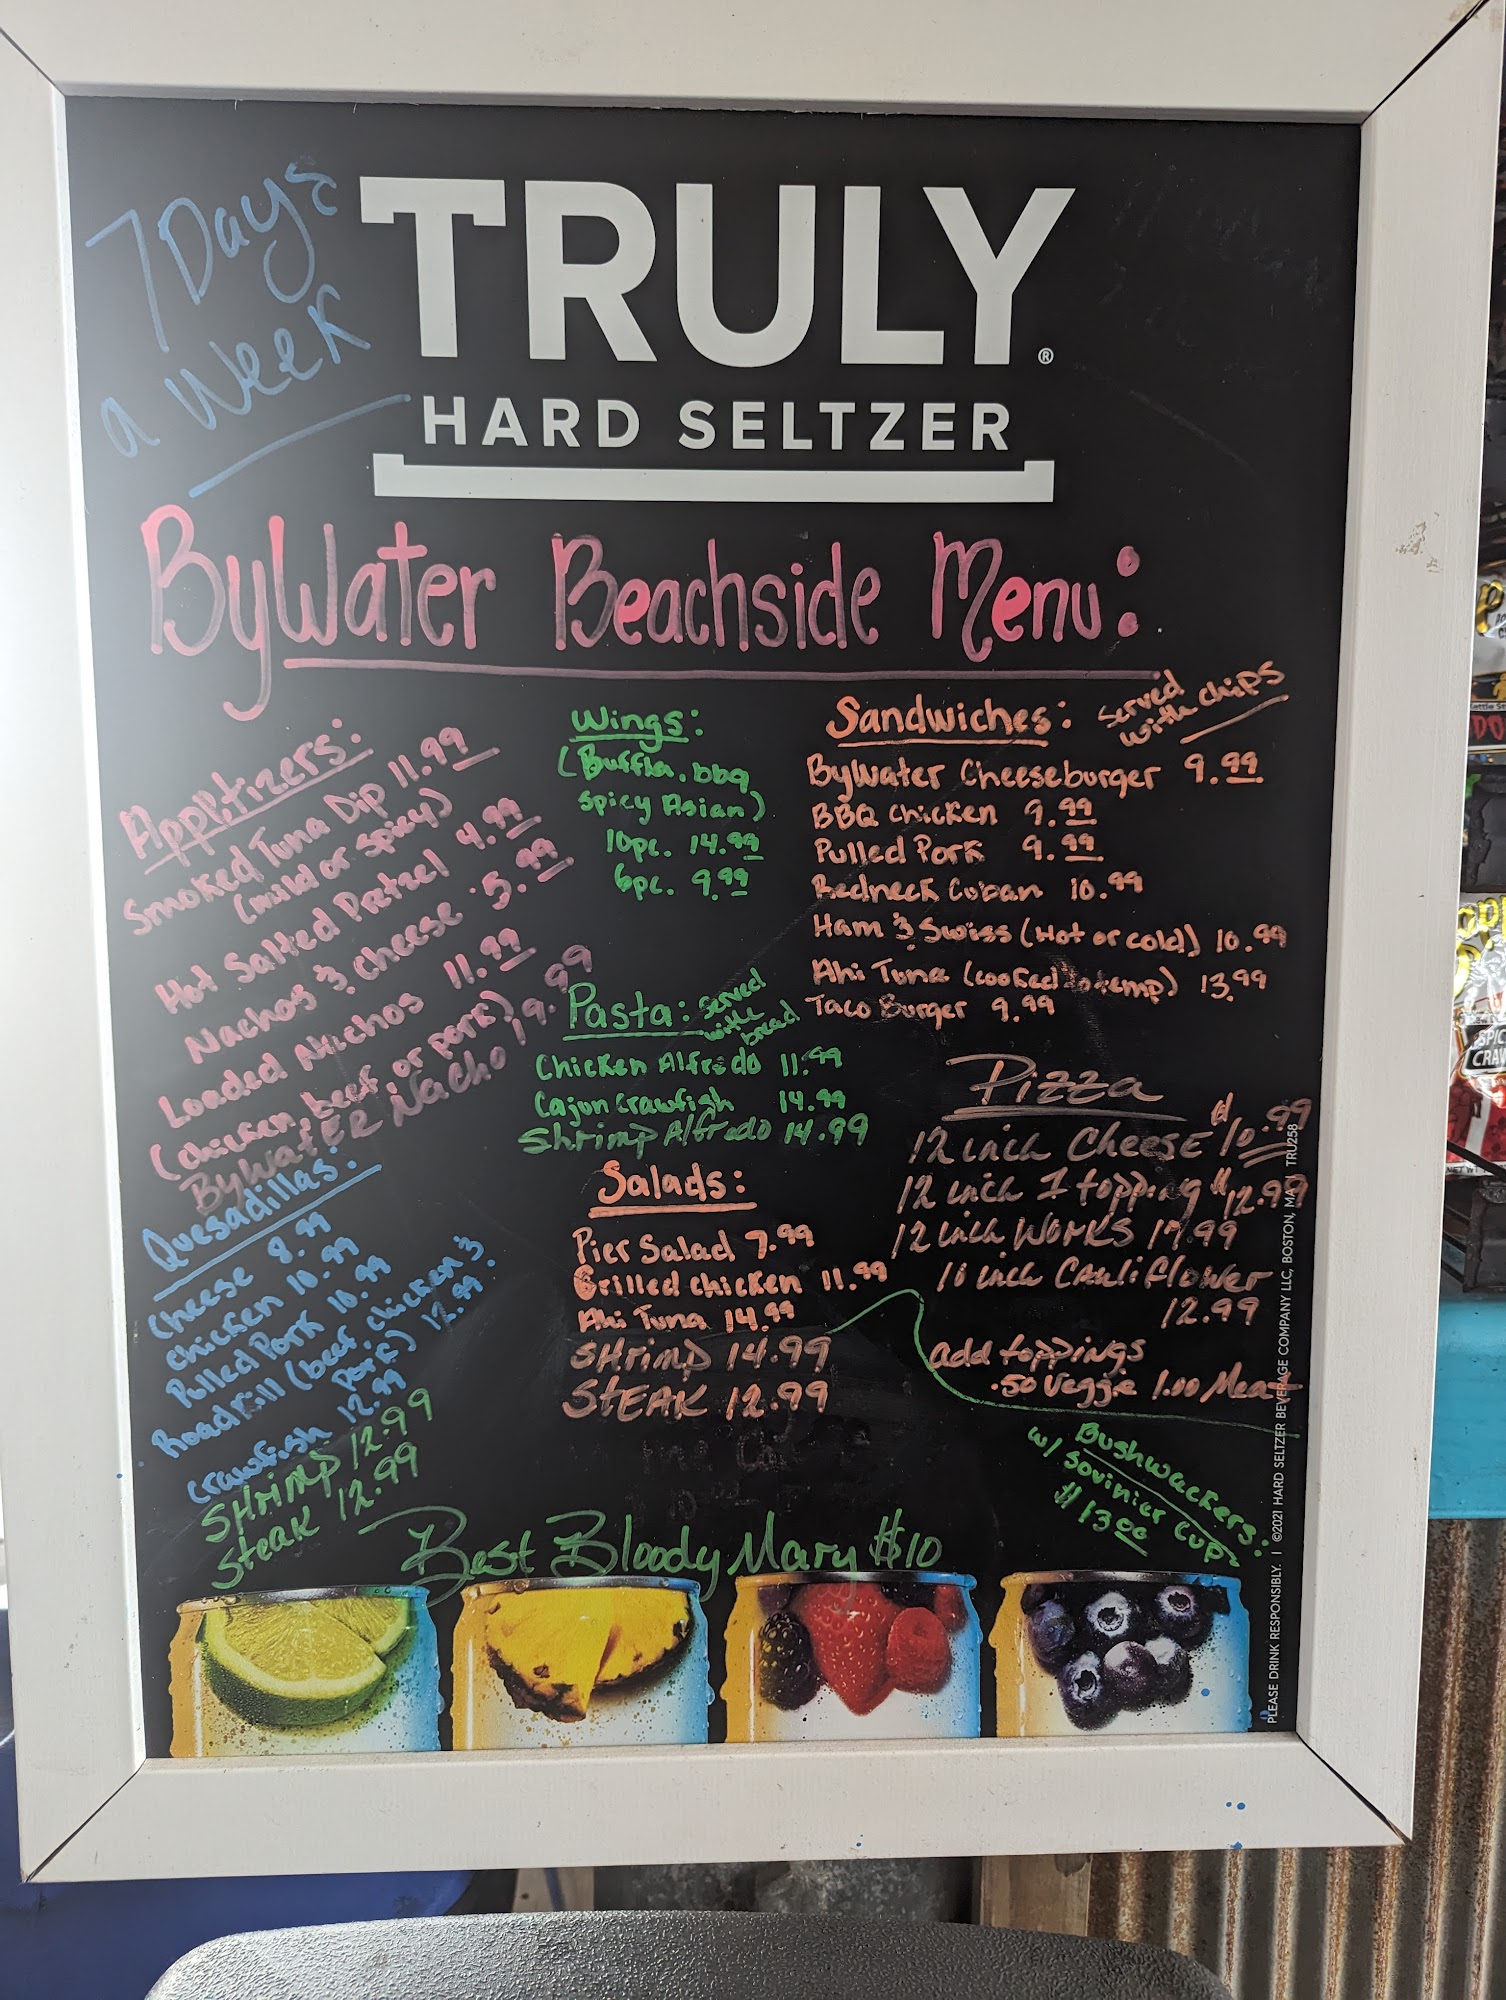 7 Days
a Week
TRULY®
HARD SELTZER
ByWater Beachside Menu:
Apptizers:
Smoked Tuna Dip 11.99
(mild or spicy)
Hot Salted Pretzel 4.99
Nachos & Cheese 5.99
Loaded Nachos 11.99
(chicken, beef or pork)
ByWatER Nacho 19.99
Quesadillas:
Cheese 8.99
Chicken 10.99
Pulled Pork 10.99
Roadkill (beef, chicken &
pork) 12.99
Crawfish 12.99
SHrimp 12.99
Steak 12.99
Wings:
(Buffla, bbq
Spicy Asian)
10pc. 14.99
6pc. 9.99
Pasta: Served
with
bread
Chicken Alfredo 11.99
Cajun Crawfish 14.99
Shrimp Alfredo 14.99
Salads:
Pier Salad 7.99
Grilled chicken 11.99
Ahi Tuna 14.99
SHrimp 14.99
StEAK 12.99
Sandwiches: Served
with chips
ByWater Cheeseburger 9.99
BBQ Chicken 9.99
Pulled Pork 9.99
Redneck Cuban 10.99
Ham & Swiss (Hot or cold) 10.99
Ahi Tuna (cooked to temp) 13.99
Taco Burger 9.99
Pizza
12 inch CHeeSE $10.99
12 inch 1 topping $12.99
12 inch WORKS 17.99
10 inch CAuliflower
12.99
add toppings
.50 Veggie 1.00 Meat
Bushwackers:
w/ Sovinier Cup
$13.00
Best Bloody Mary $10
PLEASE DRINK RESPONSIBLY. | ©2021 HARD SELTZER BEVERAGE COMPANY LLC, BOSTON, MA TRU258